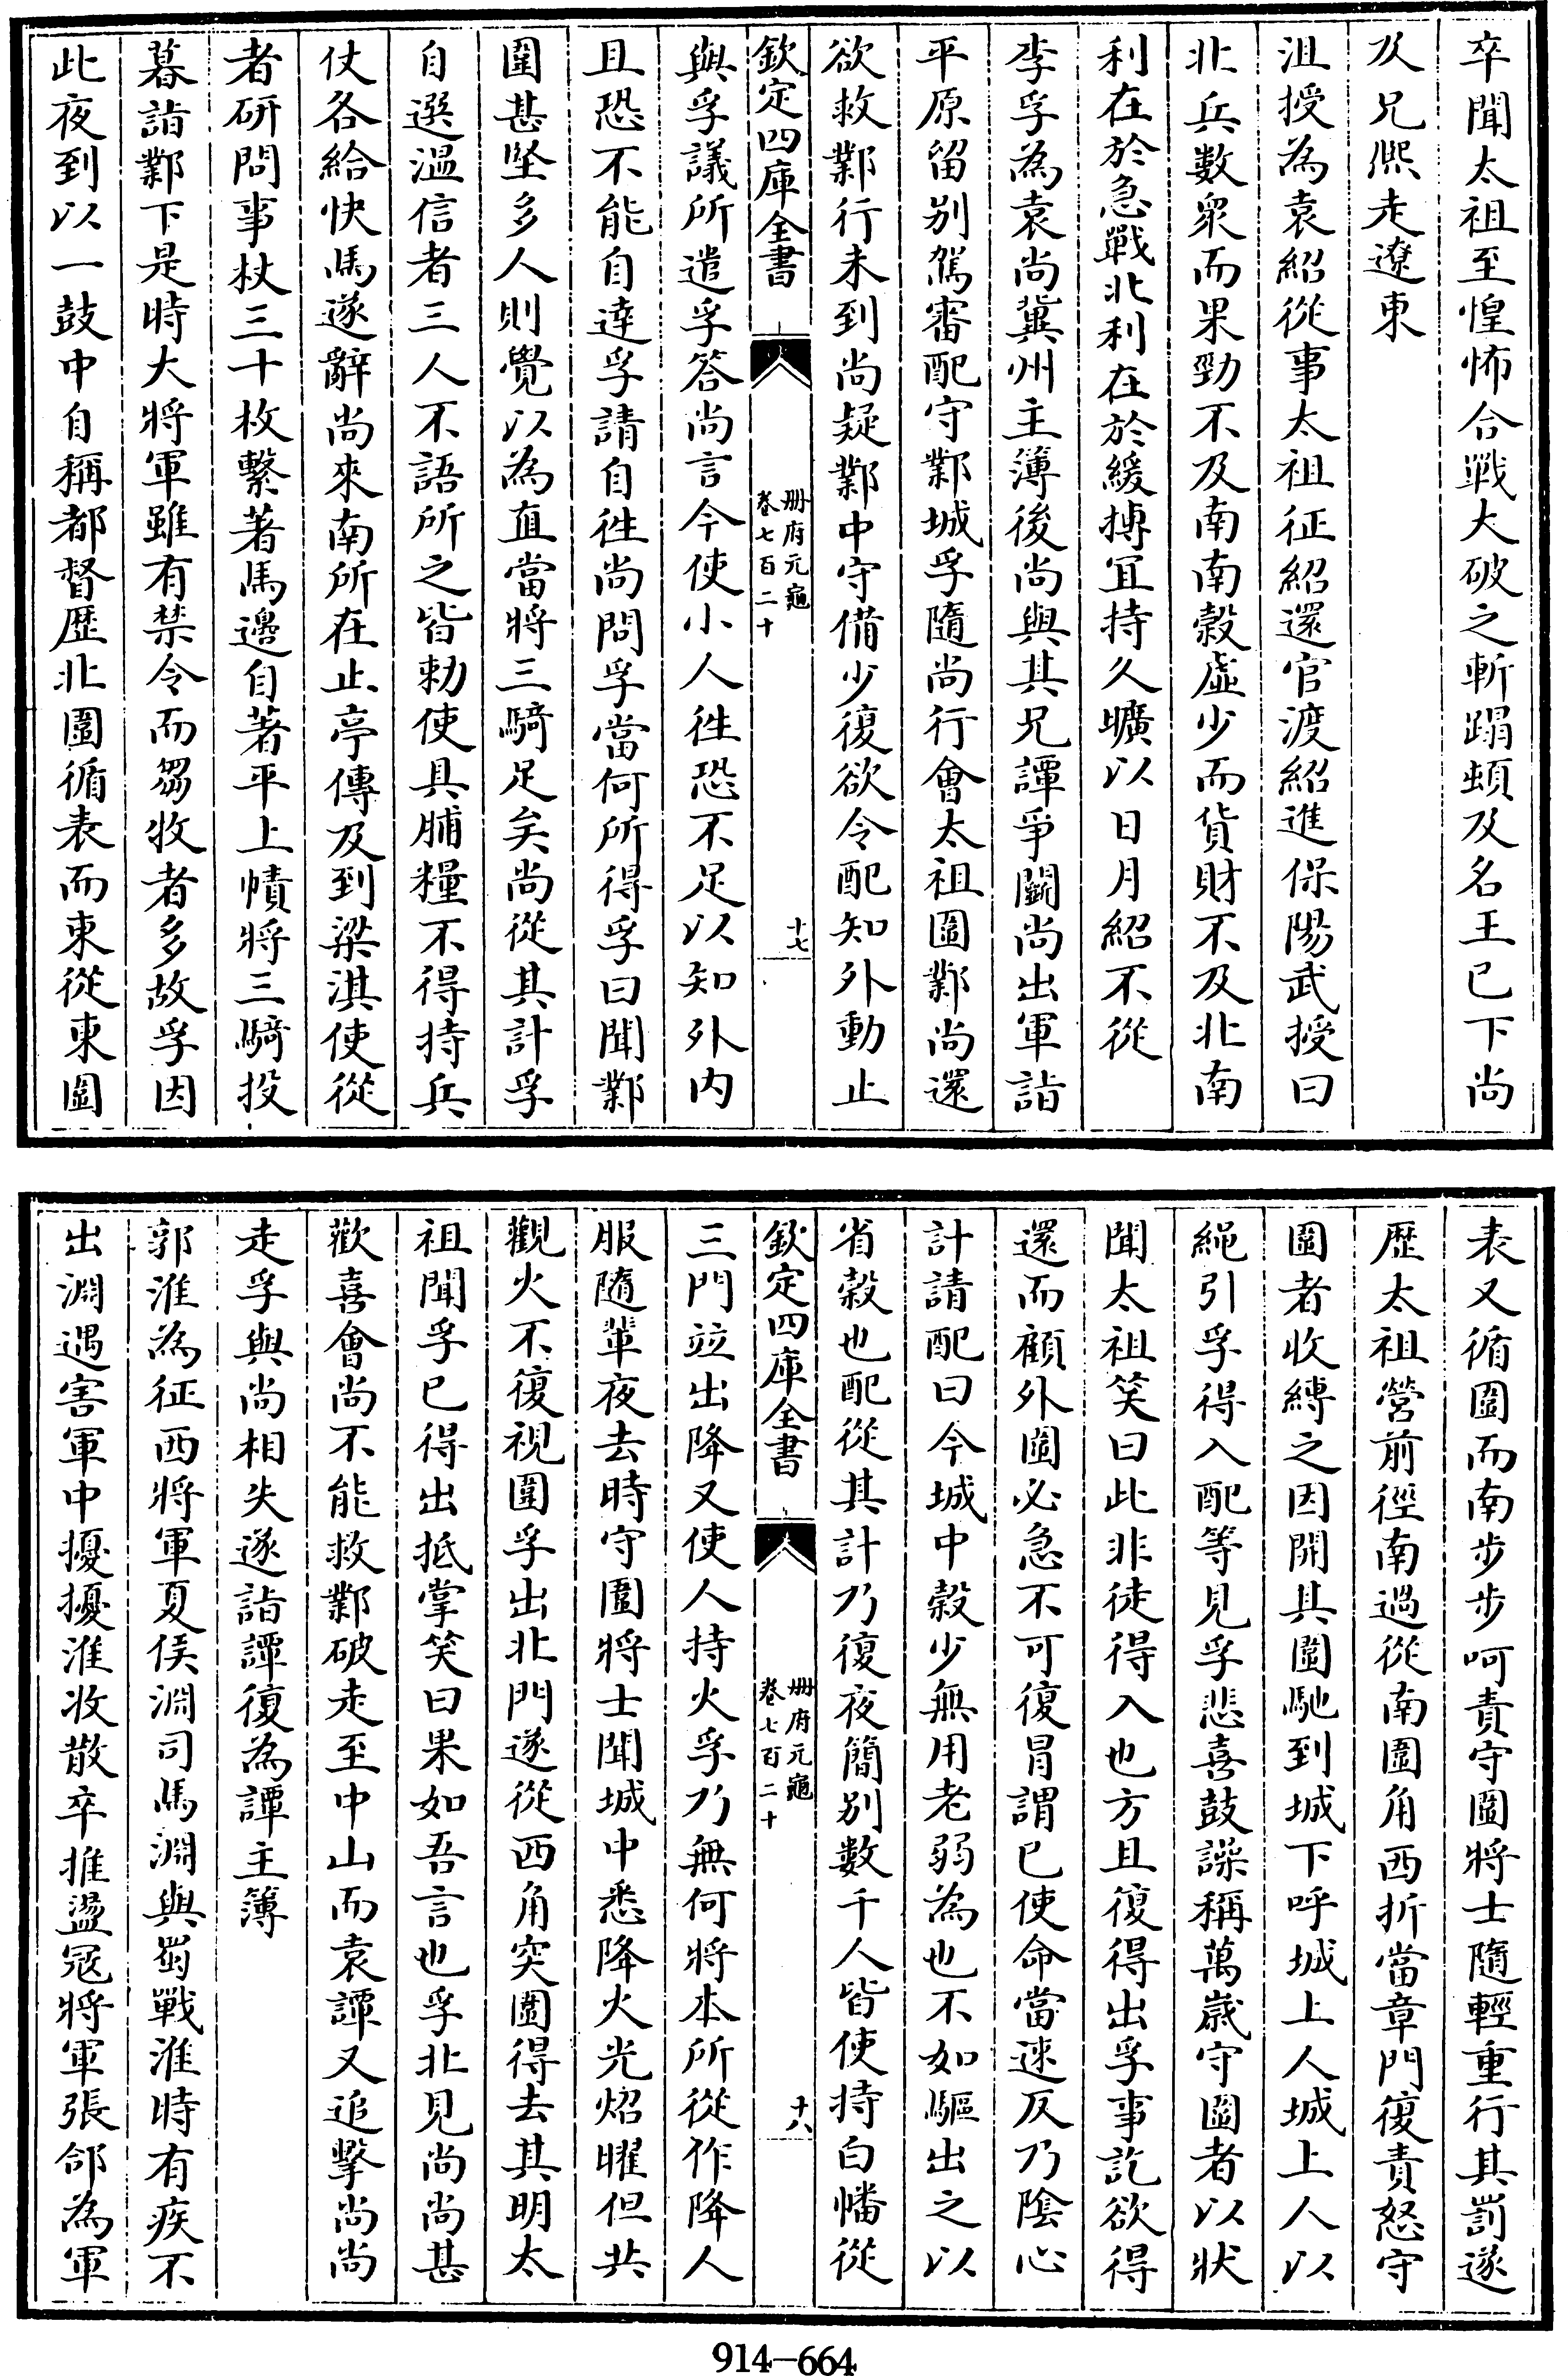 卒聞太祖至惶怖合戰大破之斬蹋頓及名王已下尚
及兄熙走遼東
沮授為袁紹從事太祖征紹還官渡紹進保陽武授曰
北兵數衆而果勁不及南南穀虛少而貨財不及北南
利在於急戰北利在於緩搏宜持久曠以日月紹不從
李孚為袁尚冀州主簿後尚與其兄譚爭鬭尚出軍詣
平原留别駕審配守鄴城孚隨尚行會太祖圍鄴尚還
欲救鄴行未到尚疑鄴中守備少復欲令配知外動止
欽定四庫全書
册府元龜
卷七百二十
十七
與孚議所遣孚答尚言今使小人徃恐不足以知外内
且恐不能自逹孚請自徃尚問孚當何所得孚曰聞鄴
圍甚堅多人則覺以為直當將三騎足矣尚從其計孚
自選溫信者三人不語所之皆勅使具脯糧不得持兵
仗各給快馬遂辭尚來南所在止亭傳及到梁淇使從
者研問事杖三十枚繫著馬邊自著平上幘將三騎投
暮詣鄴下是時大將軍雖有禁令而芻牧者多故孚因
此夜到以一鼓中自稱都督歷北圍循表而東從東圍
表又循圍而南步步呵責守圍將士隨輕重行其罰遂
歷太祖營前徑南過從南圍角西折當章門復責怒守
圍者收縳之因開其圍馳到城下呼城上人城上人以
繩引孚得入配等見孚悲喜鼓譟稱萬嵗守圍者以狀
聞太祖笑曰此非徒得入也方且復得出孚事訖欲得
還而顧外圍必急不可復冒謂己使命當速反乃隂心
計請配曰今城中穀少無用老弱為也不如驅出之以
省穀也配從其計乃復夜簡别數千人皆使持白幡從
欽定四庫全書
册府元龜
卷七百二十
十八
三門竝出降又使人持火孚乃無何將本所從作降人
服隨輩夜去時守圍將士聞城中悉降火光炤曜但共
觀火不復視圍孚出北門遂從西角突圍得去其明太
祖聞孚已得出抵掌笑曰果如吾言也孚北見尚尚甚
歡喜會尚不能救鄴破走至中山而袁譚又追擊尚尚
走孚與尚相失遂詣譚復為譚主簿
郭淮為征西將軍夏侯淵司馬淵與蜀戰淮時有疾不
出淵遇害軍中擾擾淮收散卒推盪寇將軍張郃為軍
914-664